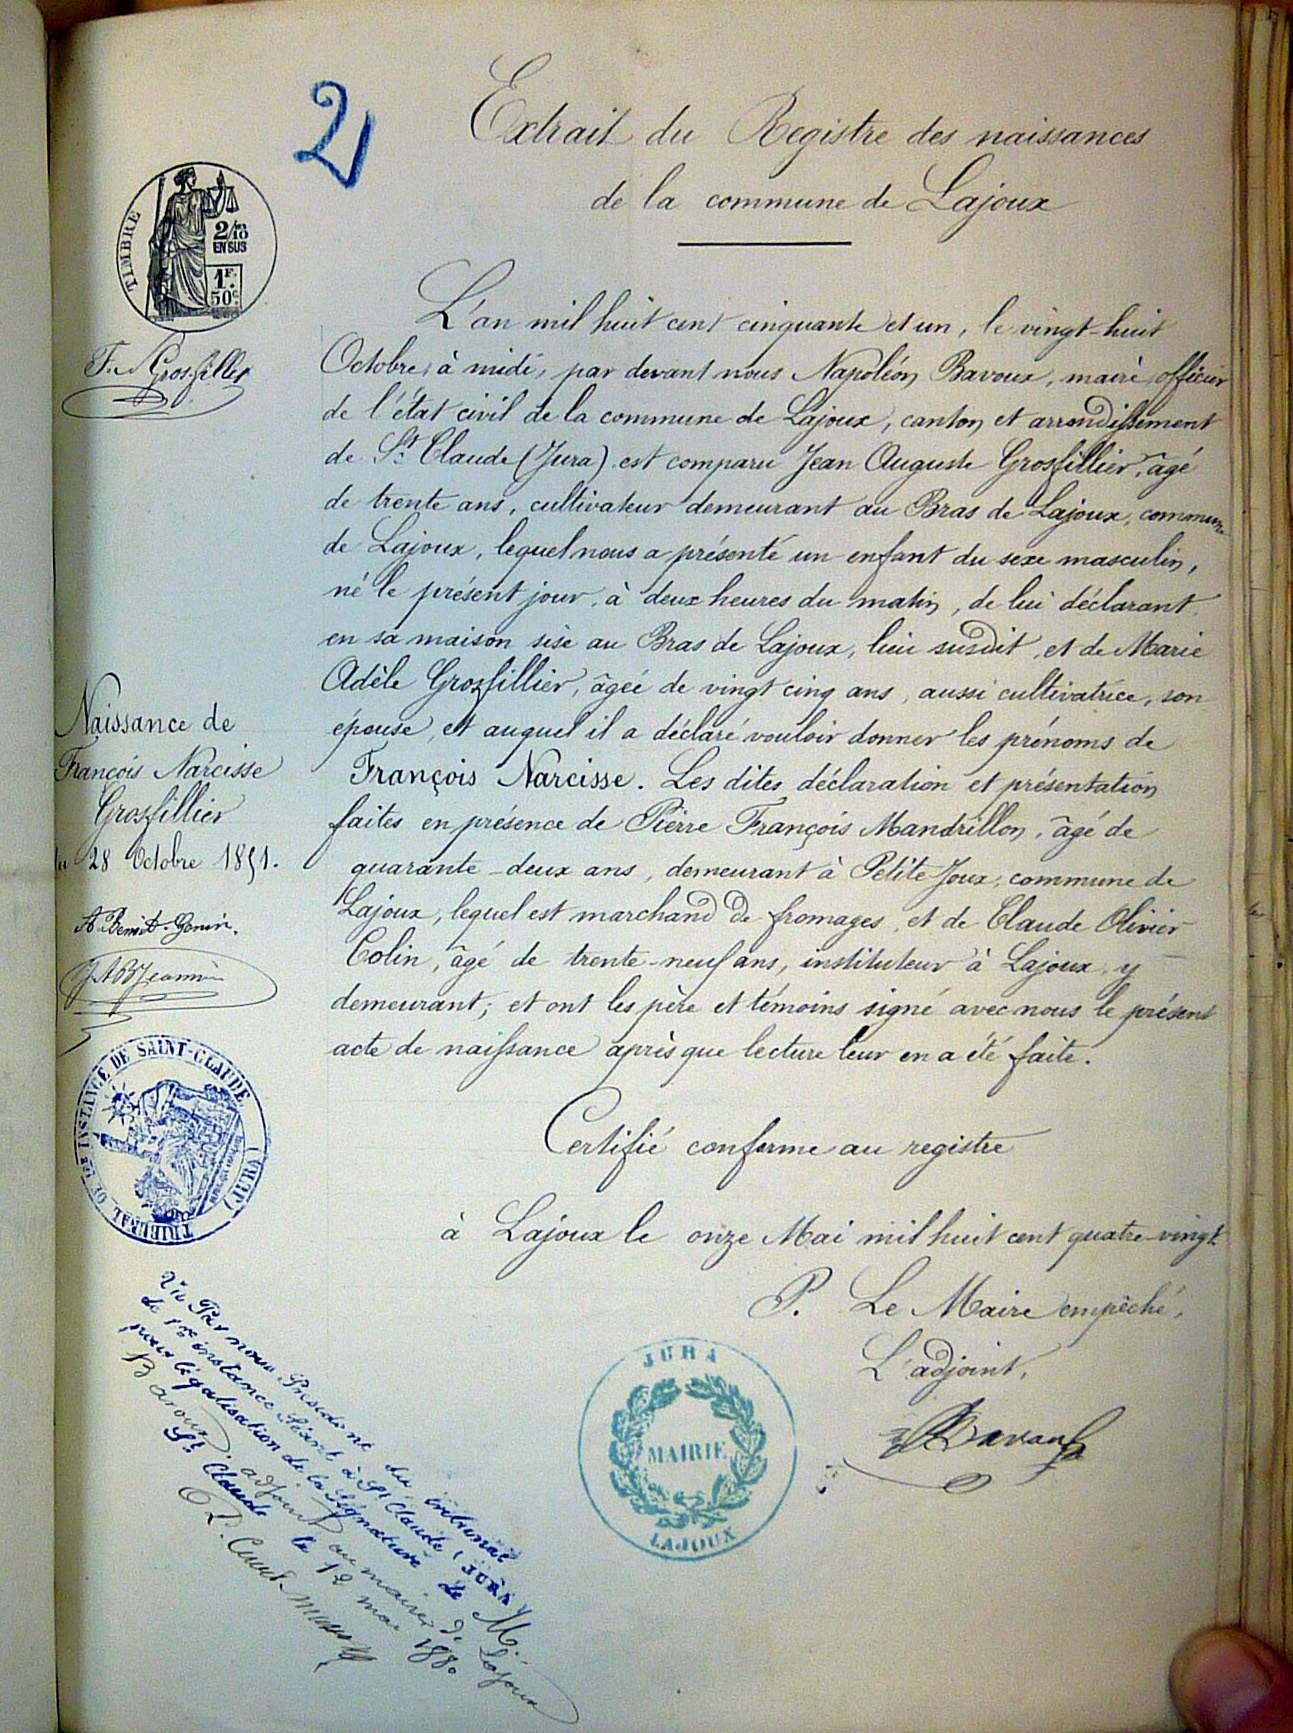 2
Extrait du Registre des naissances
de la commune de Lajoux
TIMBRE
2/10
EN SUS
1F.
50c.
F. Grosfillex
L'an mil huit cent cinquante et un, le vingt-huit
Octobre, à midi, par devant nous Napoléon Bavoux, maire, officier
de l'état civil de la commune de Lajoux, canton et arrondissement
de St. Claude (Jura) est comparu Jean Auguste Grosfillier, âgé
de trente ans, cultivateur demeurant au Bras de Lajoux, commune
de Lajoux, lequel nous a présenté un enfant du sexe masculin,
né le présent jour, à deux heures du matin, de lui déclarant
en sa maison sise au Bras de Lajoux, lieu susdit, et de Marie
Adèle Grosfillier, âgée de vingt cinq ans, aussi cultivatrice, son
epouse, et auquel il a déclaré vouloir donner les prénoms de
François Narcisse. Les dites déclaration et présentation
faites en présence de Pierre François Mandrillon, âgé de
quarante-deux ans, demeurant à Petite Joux, commune de
Lajoux, lequel est marchand de fromages, et de Claude Olivier
Colin, âgé de trente-neuf ans, instituteur à Lajoux, y
demeurant; et ont les père et témoins signé avec nous le présent
acte de naissance après que lecture leur en a été faite.
Naissance de
François Narcisse
Grosfillier
du 28 Octobre 1851.
A. Benoit-Gonin.
TRIBUNAL DE 1re INSTANCE DE SAINT-CLAUDE (JURA)
Certifié conforme au registre
à Lajoux le onze Mai mil huit cent quatre-vingt
P. Le Maire empêché,
L'adjoint,
Bavoux
JURA
MAIRIE
LAJOUX
Vu Par nous Président du tribunal
de 1re instance séant à St Claude (JURA)
pour légalisation de la signature de M.
Bavoux, adjoint au maire de Lajoux
St Claude le 12 mai 1880